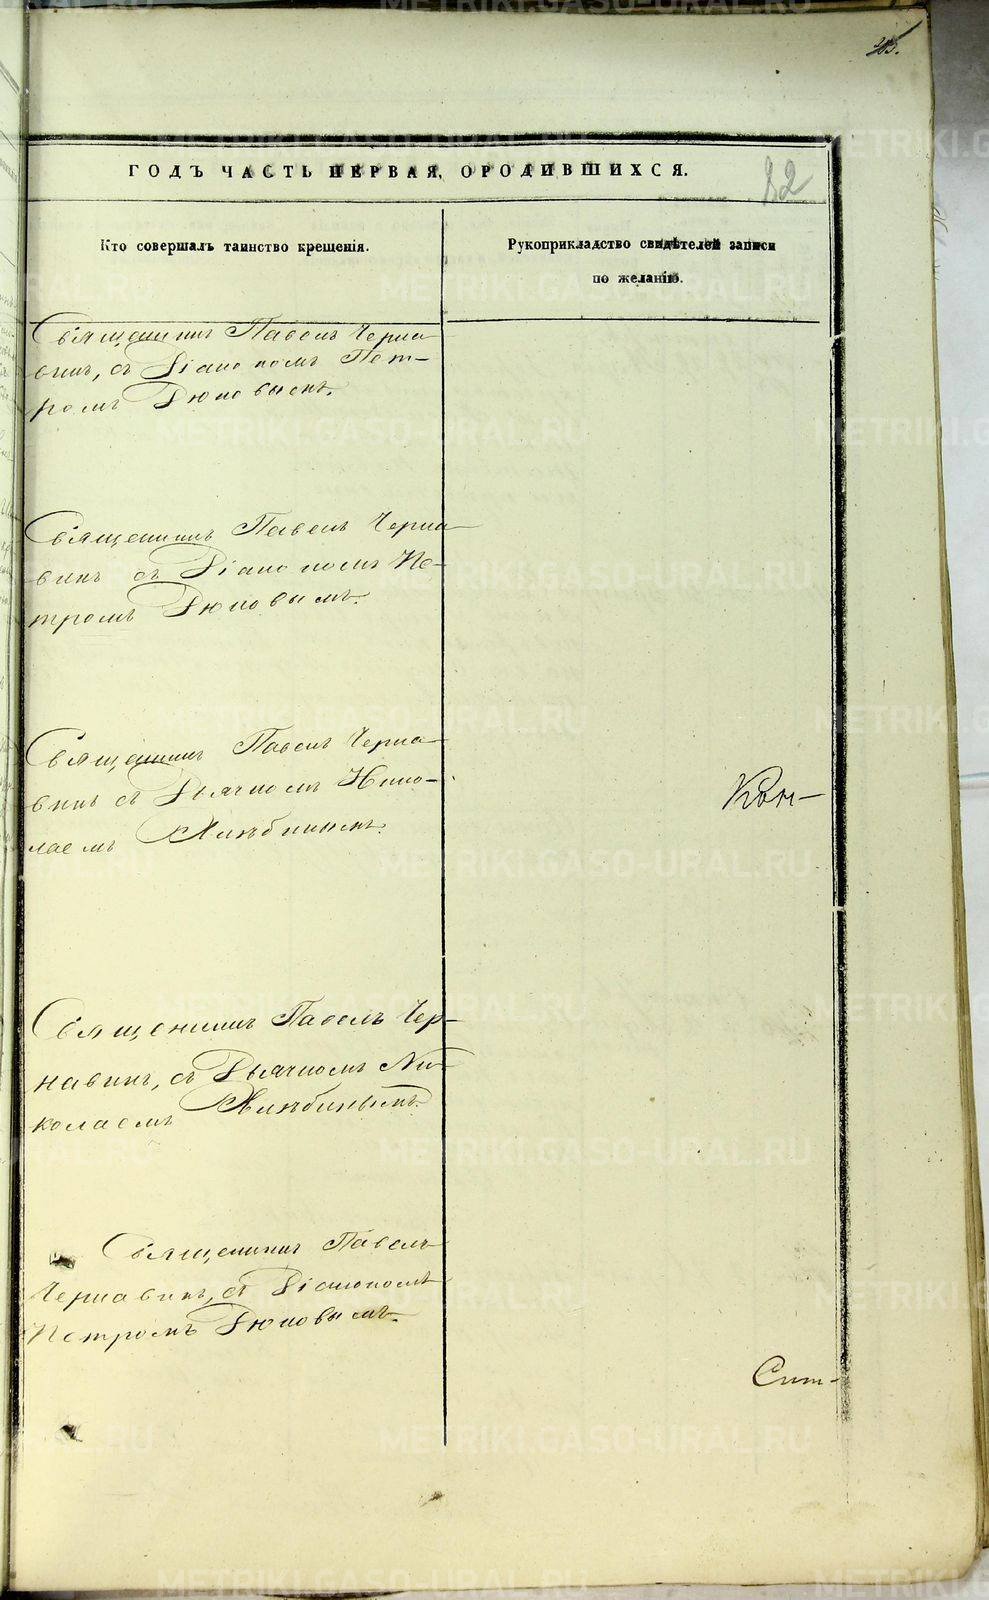 305.
82
ГОДЪ ЧАСТЬ ПЕРВАЯ, О РОДИВШИХСЯ.
Кто совершалъ таинство крещенія.
Рукоприкладство свидѣтелей записи
по желанію.
Священникъ Павелъ Черна-
винъ, съ Діакономъ Пет-
ромъ
Священникъ Павелъ Черна-
винъ съ Діакономъ Пе-
тромъ
Священникъ Павелъ Черна-
винъ съ Дьячкомъ Нико-
лаемъ
Священникъ Павелъ Чер-
навинъ, съ Дьячкомъ Ни-
колаемъ
Священникъ Павелъ
Чернавинъ, съ Діакономъ
Петромъ
METRIKI.GASO-URAL.RU